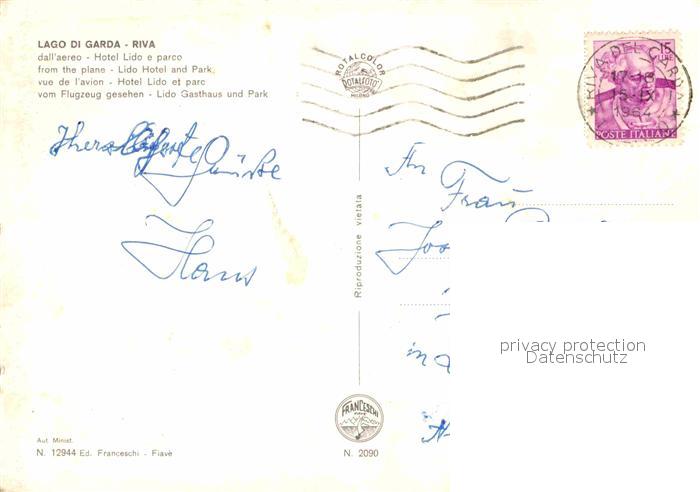 LAGO DI GARDA - RIVA
dall'aereo - Hotel Lido e parco
from the plane - Lido Hotel and Park
vue de l'avion - Hotel Lido et parc
vom Flugzeug gesehen - Lido Gasthaus und Park
ROTALCOLOR
ROTALFOTO
MILANO
15
LIRE
RIVA DEL GARDA
17-18
15-IX
1964
POSTE ITALIANE
Grüsse
Hans
An
Frau
Jos
in
Riproduzione vietata
privacy protection
Datenschutz
FRANCESCHI
Aut. Minist.
N. 12944 Ed. Franceschi - Fiavè
N. 2090